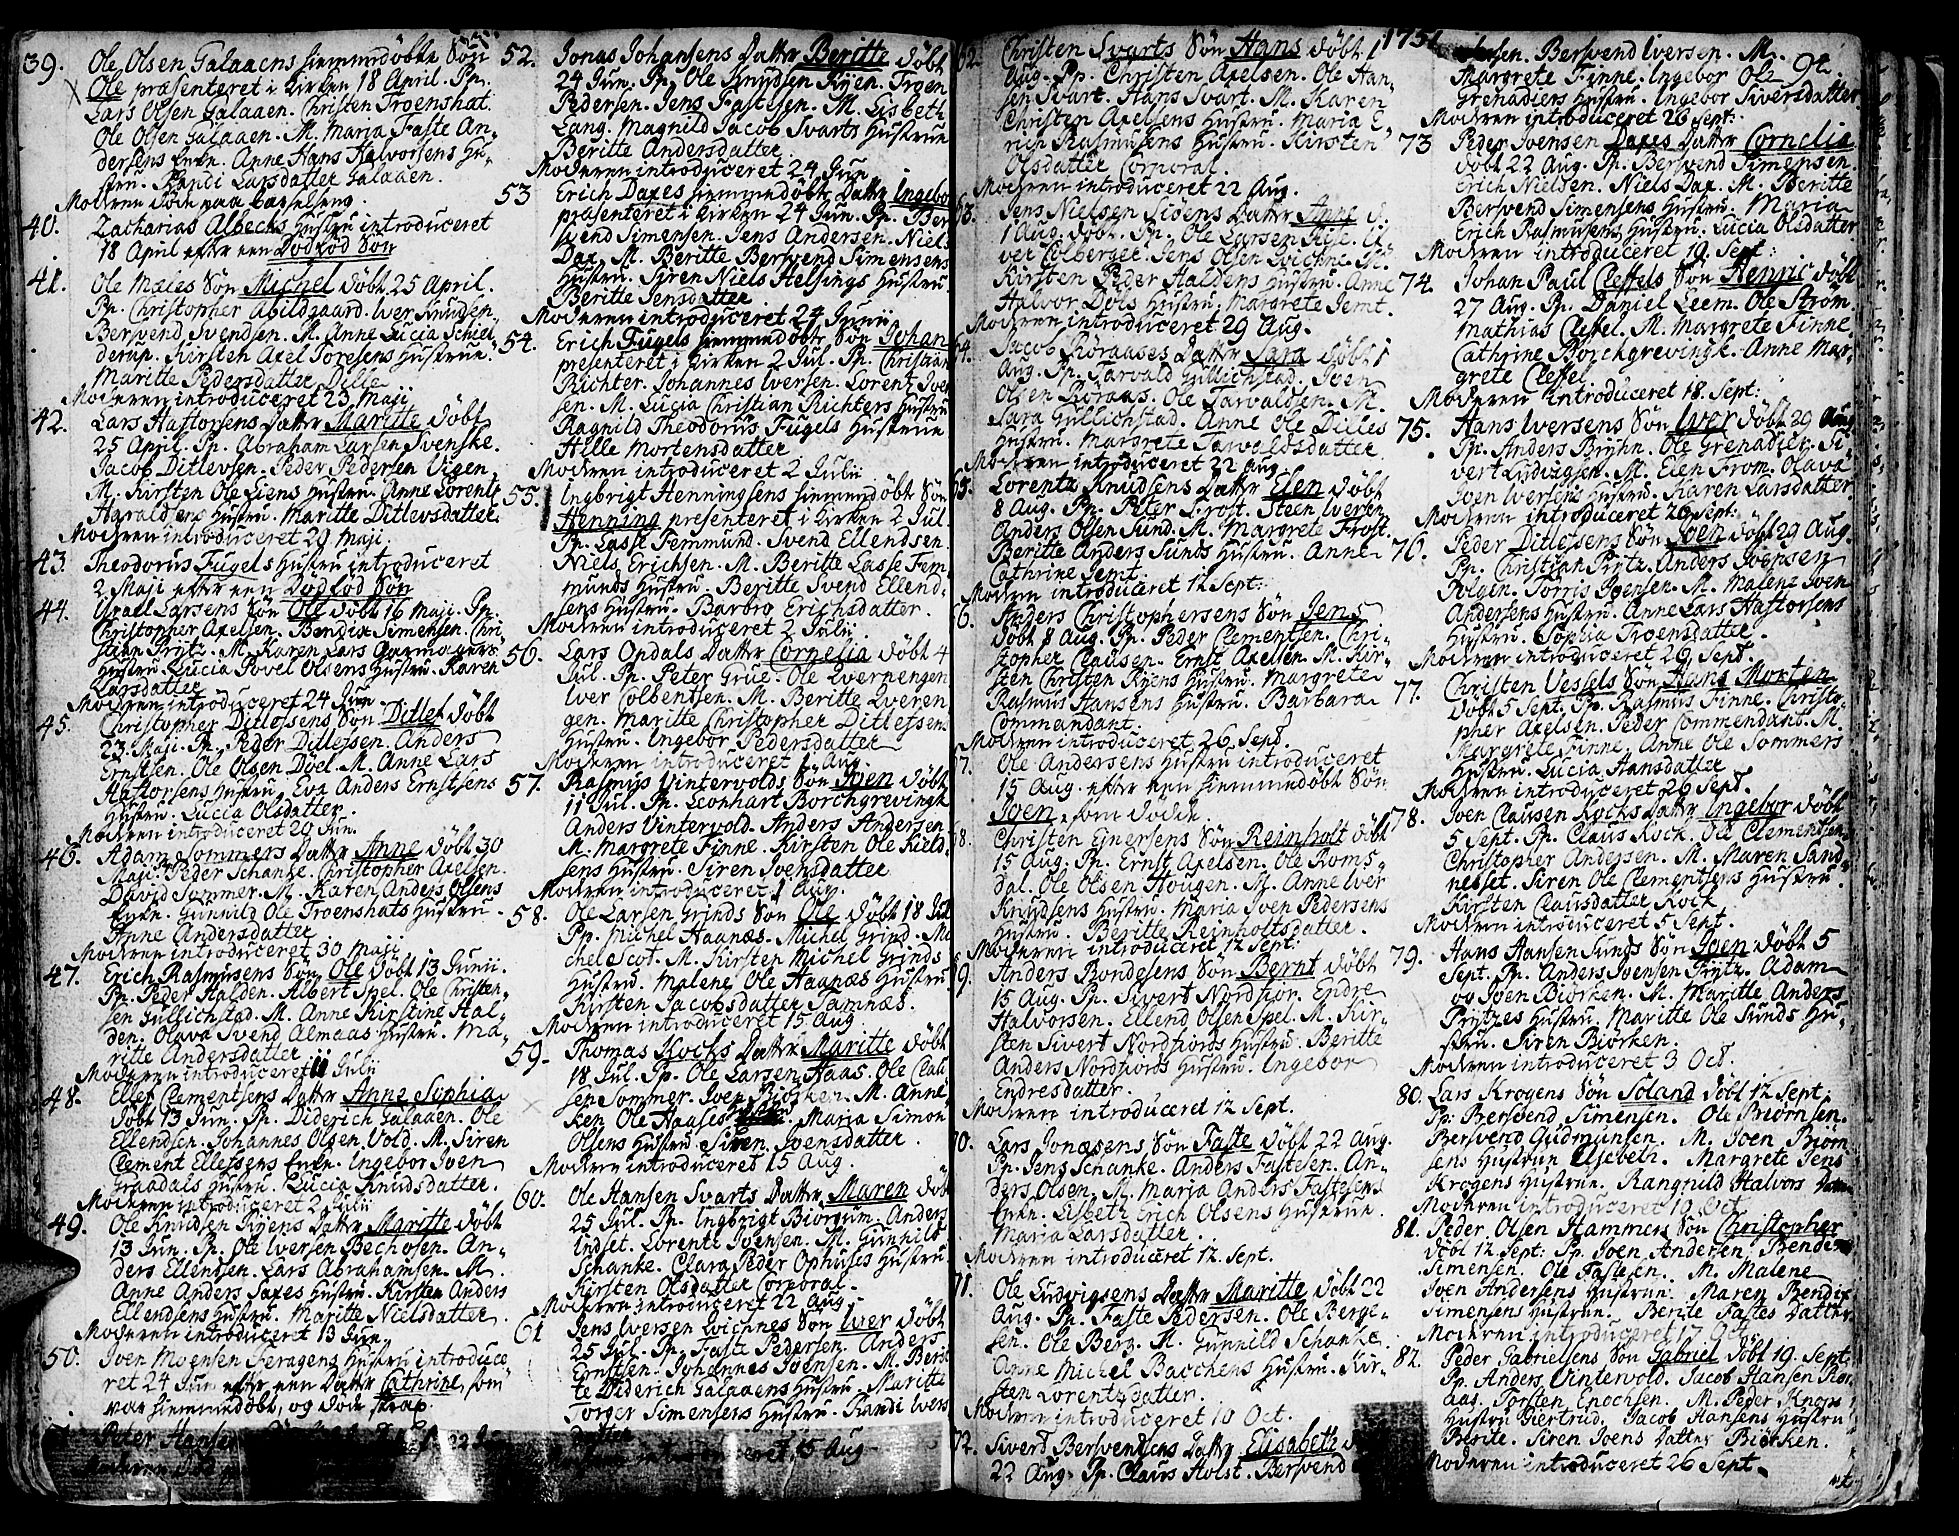 39. Ole Olsen Galaaens hiemmedöbte Sön
Ole præsenteret i Kirken 18 April. Pp.
Lars Olsen Galaaen. Christen Troenshat.
Ole Olsen Galaaen. M. Maria Faste An-
dersens Enke. Anne Hans Halvorsens Hu-
stru. Randi Larsdatter Galaaen.
Moderen döde paa Barselseng.
40. Zacharias Albechs Hustru introduceret
18 April efter een Dödfød Sön
41. Ole Mæles Sön Michel döbt 25 April.
Pp. Christopher Abildgaard. Iver Knudsen.
Bersvend Svendsen. M. Anne Lucia Schiel-
derup. Kirsten Axel Toresens Hustrue.
Maritte Pedersdatter Dille
Moderen introduceret 23 Maji
42. Lars Haftorsens Datter Maritte döbt
25 April. Pp. Abraham Larsen Svenske.
Jacob Ditlevsen. Peder Pedersen Vigen.
M. Kirsten Ole Liens Hustru. Anne Lorentz
Haraldsens Hustru. Maritte Ditlevsdatter.
Moderen introduceret 29 Maji.
43. Theodorus Fugels Hustru introduceret
2 Maji efter een Dödfød Sön
44. Israel Larsens Sön Ole döbt 16 Maji. Pp.
Christopher Axelsen. Bendix Simensen. Chri-
sten Fritz. M. Karen Lars Garmagers
Hustru. Lucia Povel Olsens Hustru. Karen
Larsdatter
Moderen introduceret 24 Jun
45. Christopher Ditlefsens Sön Ditlef döbt
23 Maji. Pp. Peder Ditlefsen. Anders
Ernstsen. Ole Olsen Döel. M. Anne Lars
Haftorsens Hustru. Eva Anders Ernstsens
Hustru. Lucia Olsdatter.
Moderen introduceret 20 Jun.
46. Adam Sommers Datter Anne döbt 30
Maji. Peder Schanke. Christopher Axelsen.
David Sommer. M. Karen Anders Olsens
Enke. Gunnild Ole Troenshats Hustru.
Anne Andersdatter
Moderen introduceret 30 Maji
47. Erich Rasmusens Sön Ole döbt 13 Junii.
Pp. Peder Halden. Albert Spel. Ole Christen-
sen Gullichstad. M. Anne Kirstine Hal-
den. Olava Svend Almaas Hustru. Ma-
ritte Andersdatter.
Moderen introduceret 11 Julii
48. Ellef Clementsens Datter Anne Sophia
döbt 13 Jun. Pp. Diderich Galaaen. Ole
Ellendsen. Johannes Olsen Vold. M. Siren
Clement Ellefsens Enke. Ingebor Joen
Graadals Hustru. Lucia Knudsdatter.
Moderen introduceret 2 Julii
49. Ole Knudsen Ryens Datter Maritte döbt
13 Jun. Pp. Ole Iversen Bechosen. An-
ders Ellendsen. Lars Abrahamsen. M.
Anne Anders Saxes Hustru. Kirsten Anders
Ellendsens Hustru. Maritte Nielsdatter.
Moderen introduceret 13 Jun.
50. Joen Moensen Feragens Hustru introduce-
ret 24 Jun efter een Datter Cathrine, som
var hiemmedöbt, og döde strax.
Peter Hansen
52. Jonas Johansens Datter Beritte döbt
24 Jun. Pp. Ole Knudsen Ryen. Troen
Pedersen. Jens Fastesen. M. Lisbeth
Lang. Magnild Jacob Svarts Hustrue
Beritte Andersdatter.
Moderen introduceret 24 Jun
53 Erich Daxes hiemmedöbte Datter Ingebor
præsenteret i Kirken 24 Jun. Pp. Ber-
svend Simensen. Jens Andersen. Niels
Dax. M. Beritte Bersvend Simensens
Hustru. Siren Niels Helsings Hustru
Beritte Jensdatter
Moderen introduceret 24 Junii
54. Erich Fugels hiemmedöbte Sön Johan
presenteret i Kirken 2 Jul. Pp. Christian
Richter. Johannes Iversen. Lorentz Iver-
sen. M. Lucia Christian Richters Hustru
Ragnild Theodorus Fugels Hustrue
Hille Mortensdatter
Moderen introduceret 2 Julii
55. Ingbrigt Henningsens hiemmedöbte Sön
Henning presenteret i Kirken 2 Jul.
Pp. Lasse Femmund. Svend Ellendsen.
Niels Erichsen. M. Beritte Lasse Fem-
munds Hustru. Beritte Svend Ellend-
sens Hustru. Barbro Erichsdatter.
Moderen introduceret 2 Julii
56. Lars Opdals Datter Cornelia döbt 4
Jul. Pp. Peter Grue. Ole Qvernengen
Iver Colbentsen. M. Beritte Qveren-
gen. Maritte Christopher Ditlefsens
Hustru. Ingebor Pedersdatter
Moderen introduceret 1 Aug.
57. Rasmus Vintervolds Sön Joen döbt
11 Jul. Pp. Leonhart Borchgrevingk
Anders Vintervold. Anders Andersen
M. Margrete Finne. Kirsten Ole Kield-
sens Hustru. Siren Svensdatter
Moderen introduceret 1 Aug.
58. Ole Larsen Grinds Sön Ole döbt 18 Jul
Pp. Michel Haanæs. Michel Grind. Mi-
chel Scot. M. Kirsten Michel Grinds
Hustru. Malene Ole Haanæs Hustru
Kirsten Jacobsdatter Samnæs.
Moderen introduceret 15 Aug
59. Thomas Kocks Datter Maritte döbt
18 Jul. Pp. Ole Larsen Haas. Ole Clau-
sen Sommer. Joen Biorken. M. Anne
Ole Haases. Maria Simon
Olsens Hustru. Siren Svensdatter.
Moderen introduceret 15 Aug.
60. Ole Hansen Svarts Datter Maren döbt
25 Jul. Pp. Ingbrigt Biorgum. Anders
Indset. Lorentz Svensen. M. Gunnild
Schanke. Clara Peder Ophuses Hustru
Kirsten Olsdatter Corporal.
Moderen introduceret 22 Aug
61 Jens Iversen Evichnes Sön Iver döbt
25 Jul. Pp. Faste Pedersen. Anders
Ernstsen. Johannes Joensen. M. Berit-
te Diderich Galaaens Hustru. Maritte
Torger Simensens Hustru. Randi Ivers
introduceret 15 Aug
1751
62. Christen Svarts Sön Hans döbt 1
Aug. Pp. Christen Axelsen. Ole Han-
sen Svart. Hans Svart. M. Karen
Christen Axelsens Hustru. Maria E-
rich Rasmusens Hustru. Kirsten
Olsdatter Corporal.
Moderen introduceret 22 Aug.
63. Jens Nielsen Siöens Datter Anne d.
1 Aug. döbt. Pp. Ole Larsen Riise. Si-
ver Colberger. Jens Olsen Evichne. M.
Kirsten Peder Haldens Hustru. Anne
Halvor Döls Hustru. Margrete Jemt.
Moderen introduceret 29 Aug.
64. Jacob Röraases Datter Sara döbt 1
Aug. Pp. Tarvald Gullichstad. Joen
Olsen Röraas. Ole Tarvaldsen. M.
Sara Gullichstad. Anne Ole Dilles
Hustru. Margrete Tarvaldsdatter
Moderen introduceret 22 Aug
65. Lorentz Knudsens Datter Elen döbt
8 Aug. Pp. Peter Frost. Steen Iversen
Anders Olsen Sund. M. Margrete Frost.
Beritte Anders Sunds Hustru. Anne
Cathrine Jemt
Moderen introduceret 12 Sept:
6. Anders Christophersens Sön Jens
döbt 8 Aug. Pp. Peder Clementsen. Chri-
stopher Clausen. Ernst Axelsen. M. Kir-
sten Christen Ryens Hustru. Margrete
Rasmus Hansens Hustru. Barbara
Commandant.
Moderen introduceret 26 Sept.
7. Ole Andersens Hustru introduceret
15 Aug. efter een hiemmedöbt Sön
Joen, som döde.
8. Christen Ejnersens Sön Reinholt döbt
15 Aug. Pp. Ernst Axelsen. Ole Roms-
dal. Ole Olsen Hougen. M. Anne Iver
Knudsens Hustru. Maria Joen Pedersens
Hustru. Beritte Reinholtsdatter.
Moderen introduceret 12 Sept:
9. Anders Rondesens Sön Bernt döbt
15 Aug. Pp. Sivert Nordfior. Endre
Halvorsen. Ellend Olsen Spel. M. Kir-
sten Sivert Nordfiords Hustru. Beritte
Anders Nordfiords Hustru. Ingebor
Endresdatter.
Moderen introduceret 12 Sept.
70. Lars Jonæsens Sön Faste döbt 22 Aug.
Pp. Jens Schanke. Anders Fastesen. An-
ders Olsen. M. Maria Anders Fastesens
Enke. Lisbeth Erich Olsens Hustrue.
Maria Larsdatter.
Moderen introduceret 12 Sept.
71. Ole Ludvigsens Datter Maritte döbt 22
Aug. Pp. Faste Pedersen. Ole Berge-
sen. Ole Berg. M. Gunnild Schanke.
Anne Michel Bacchens Hustru. Kir-
sten Lorentzdatter.
Moderen introduceret 10 Oct.
72. Siverd Bersvendsens Datter Elisabeth
22 Aug. Pp. Claus Holst. Bersvend
Bersvend Iversen. M. 92
Margrete Finne. Ingebor Ole
Grenadiers Hustru. Ingebor Siversdatter
Moderen introduceret 26 Sept:
73 Peder Joensen Daxes Datter Cornelia
döbt 22 Aug. Pp. Bersvend Simensen.
Erich Nielsen. Niels Dax. M. Beritte
Bersvend Simensens Hustru. Maria
Erich Rasmusens Hustru. Lucia Olsdatter
Moderen introduceret 19 Sept:
74. Johan Paul Cleffels Sön Henric döbt
27 Aug. Pp. Daniel Leem. Ole Strom
Mathias Cleffel. M. Margrete Finne
Cathrine Borchgrevingk. Anne Mar-
grete Cleffel
Moderen introduceret 18 Sept:
75. Hans Iversens Sön Iver döbt 29 Aug
Pp. Anders Bryhn. Ole Grenadier. Si-
vert Ludvigsen. M. Elen From. Olava
Joen Iversens Hustru. Karen Larsdatter
Moderen introduceret 26 Sept:
76. Peder Ditlefsens Sön Joen döbt 29 Aug.
Pp. Christian Fritz. Anders Joensen
Polgen. Torris Joensen. M. Malene Joen
Andersens Hustru. Anne Lars Haftorsens
Hustru. Sophia Troensdatter.
Moderen introduceret 29 Sept.
77. Christen Vessels Sön Hans Morten
döbt 5 Sept. Pp. Rasmus Finne. Christo-
pher Axelsen. Peder Commendant. M.
Margrete Finne. Anne Ole Sommers
Hustru. Lucia Hansdatter
Moderen introduceret 26 Sept.
78. Joen Clausen Kocks Datter Ingebor döbt
5 Sept. Pp. Claus Kock. Ole Clementsen.
Christopher Andersen. M. Maren Sand-
nesset. Siren Ole Clementsens Hustru.
Kirsten Clausdatter Kock
Moderen introduceret 5 Sept.
79. Hans Hansen Sunds Sön Joen döbt 5
Sept. Pp. Anders Joensen Fritz. Adam
og Joen Biorken. M. Maritte Anders
Prytzes Hustru. Maritte Ole Sunds Hu-
stru. Siren Biorken.
Moderen introduceret 3 Oct.
80. Lars Krogens Sön Soland döbt 12 Sept
Pp: Bersvend Simensen. Ole Biörnsen.
Bersvend Gudmunsen. M. Joen Biörn-
sens Hustrue Elsebeth. Margrete Jens
Krogens Hustrue. Rangnild Halvors Datter
Moderen introduceret 10 Oct.
81. Peder Olsen Hammers Sön Christopher
döbt 12 Sept: Pp. Joen Andersen, Bendix
Simensen. Ole Fastesen. M. Malene
Joen Andersens Hustrue. Maren Bendix
Simensens Hustrue. Berite Fastes Datter
Moderen introduceret 17 Oct
82. Peder Gabrielsens Sön Gabriel döbt 19. Sept:
Pp. Anders Vintervold. Jacob Hansen Rör-
aas. Torsten Enochsen. M. Peder Knops
Hustru Giertrud. Jacob Hansens Hustru
Berite. Siren Joens Datter Biörken.
Moderen introduceret 26 Sept.